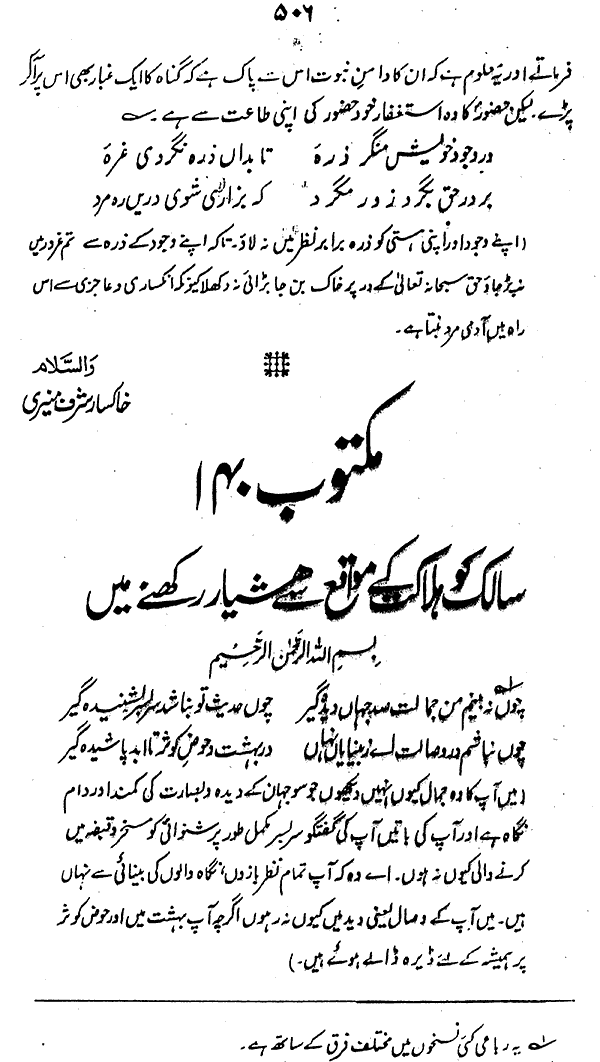 ۵۰۶
فرماتے اور یہ معلوم ہے کہ ان کا دامنِ نبوت اس سے پاک ہے کہ گناہ کا ایک غبار بھی اس پر آکر
پڑے۔ لیکن حضورؐ کا وہ استغفار خود حضور کی اپنی طاعت سے ہے۔ ؎
در وجود خویش منگر ذرہ تا بداں ذرہ نگردی غرہ
بر در حق بگرد زور مگرد کہ بزاری شوی دریں رہ مرد
(اپنے وجود اور اپنی ہستی کو ذرہ برابر نظر میں نہ لاؤ۔ تاکہ اپنے وجود کے ذرہ سے تم غرور میں
نہ پڑ جاؤ حق سبحانہ تعالیٰ کے در پر خاک بن جا بڑائی نہ دکھلا کیونکہ انکساری و عاجزی سے اس
راہ میں آدمی مرد بنتا ہے۔
والسّلام
خاکسار شرف منیری
مکتوب ۱۴۰
سالک کو ہلاکت کے مواقع سے ہشیار رکھنے میں
بِسمِ اللہِ الرَّحمٰنِ الرَّحِیْمِ
چوں نہ بینم من جمالت صد جہاں دیدہ گیر چوں حدیث تو بناشد سربسر شنیدہ گیر ؎۱
چوں نباشم در وصالت اے زبینایاں نہاں در بہشت و حوض کوثر تا ابد پاشیدہ گیر
(میں آپ کا وہ جمال کیوں نہیں دیکھوں جو سو جہان کے دیدہ و بصارت کی کمند اور دام
نگاہ ہے اور آپ کی باتیں آپ کی گفتگو سربسر مکمل طور پر شنوائی کو مسخر و قبضہ میں
کرنے والی کیوں نہ ہوں۔ اے وہ کہ آپ تمام نظر بازوں، نگاہ والوں کی بینائی سے نہاں
ہیں۔ میں آپ کے وصال یعنی دید میں کیوں نہ رہوں اگرچہ آپ بہشت میں اور حوض کوثر
پر ہمیشہ کے لئے ڈیرہ ڈالے ہوئے ہیں۔)
؎۱ یہ رباعی کئی نسخوں میں مختلف فرق کے ساتھ ہے۔